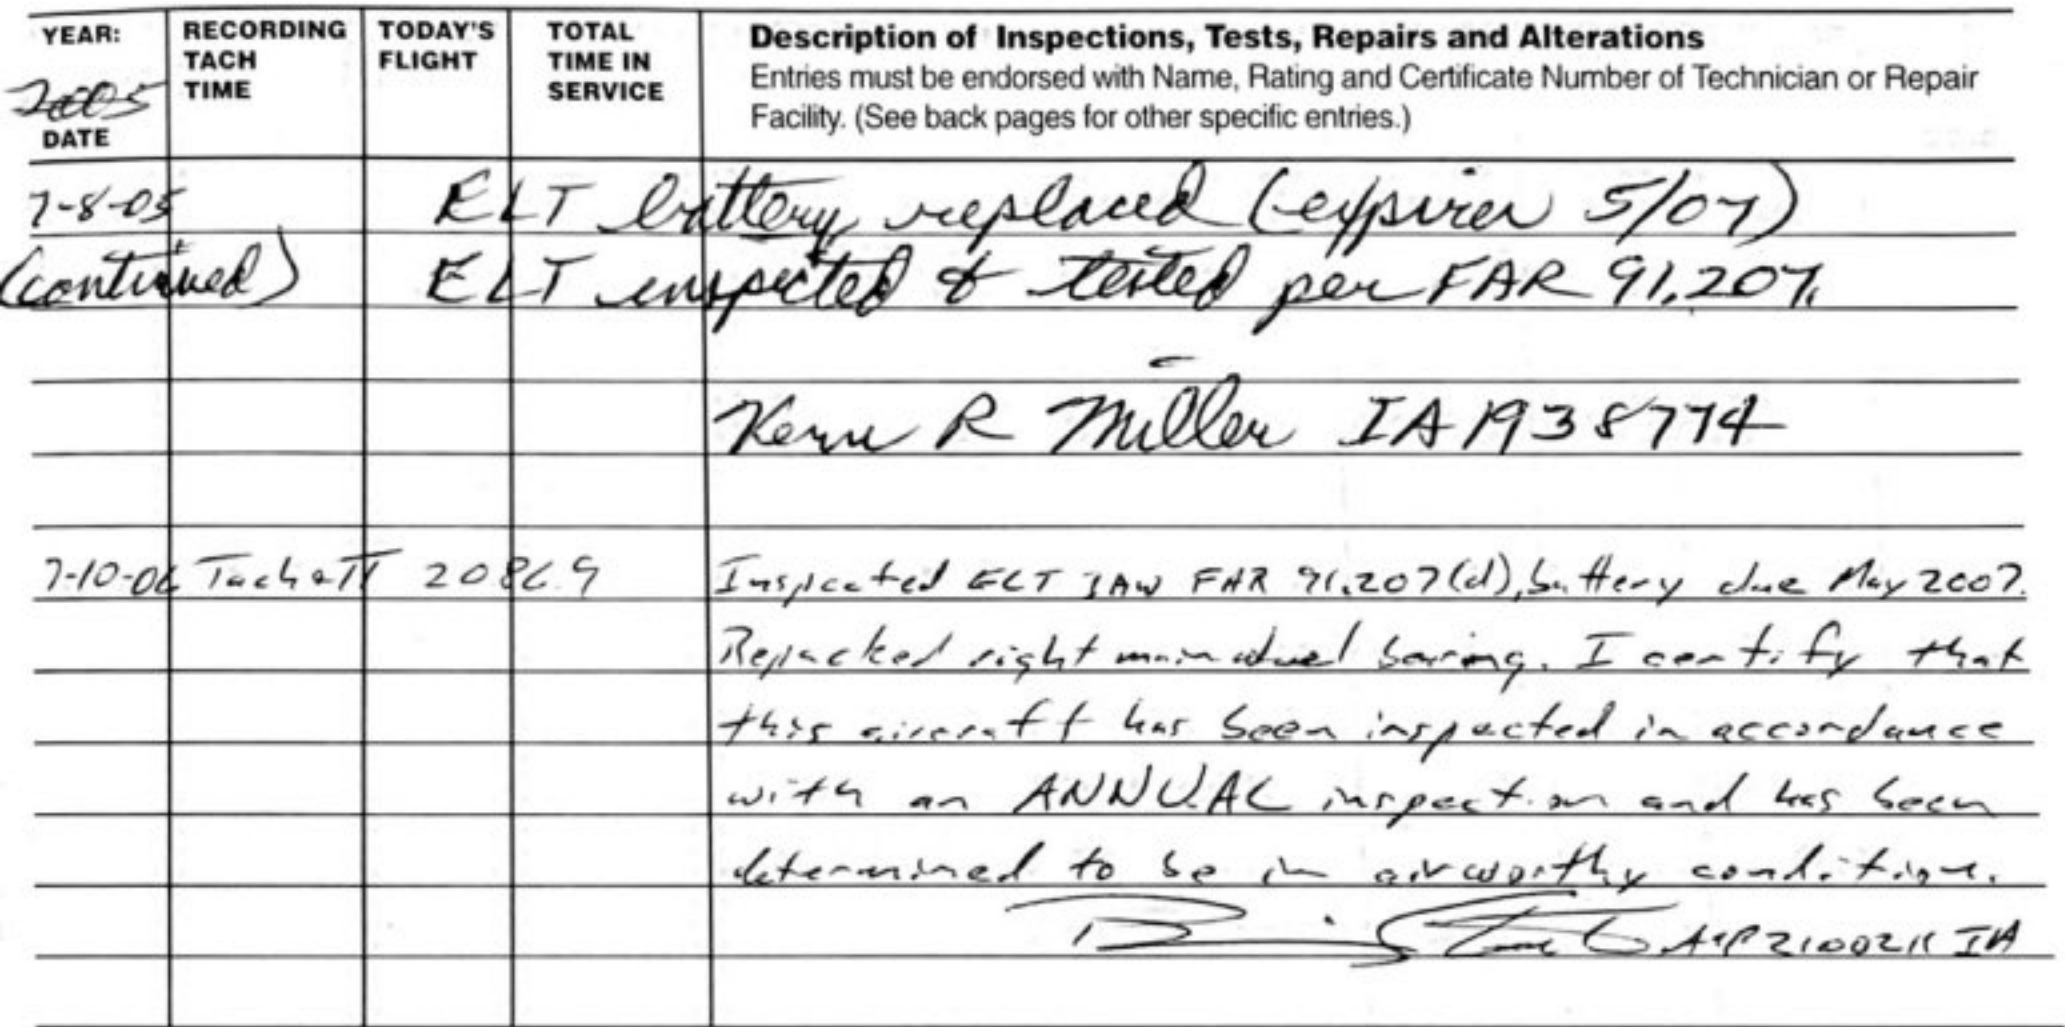 YEAR: RECORDING TODAY'S TOTAL Description of Inspections, Tests, Repairs and Alterations
TACH FLIGHT TIME IN Entries must be endorsed with Name, Rating and Certificate Number of Technician or Repair
2005 TIME SERVICE Facility. (See back pages for other specific entries.)
DATE
7-8-05 ELT battery replaced (expires 5/07)
(continued) ELT inspected & tested per FAR 91.207.
R Miller IA 1938774
7-10-06 Tach & TT 2086.9 Inspected ELT IAW FAR 91.207(d), battery due May 2007.
Repacked right main wheel bearing. I certify that
this aircraft has been inspected in accordance
with an ANNUAL inspection and has been
determined to be in airworthy condition.
IA